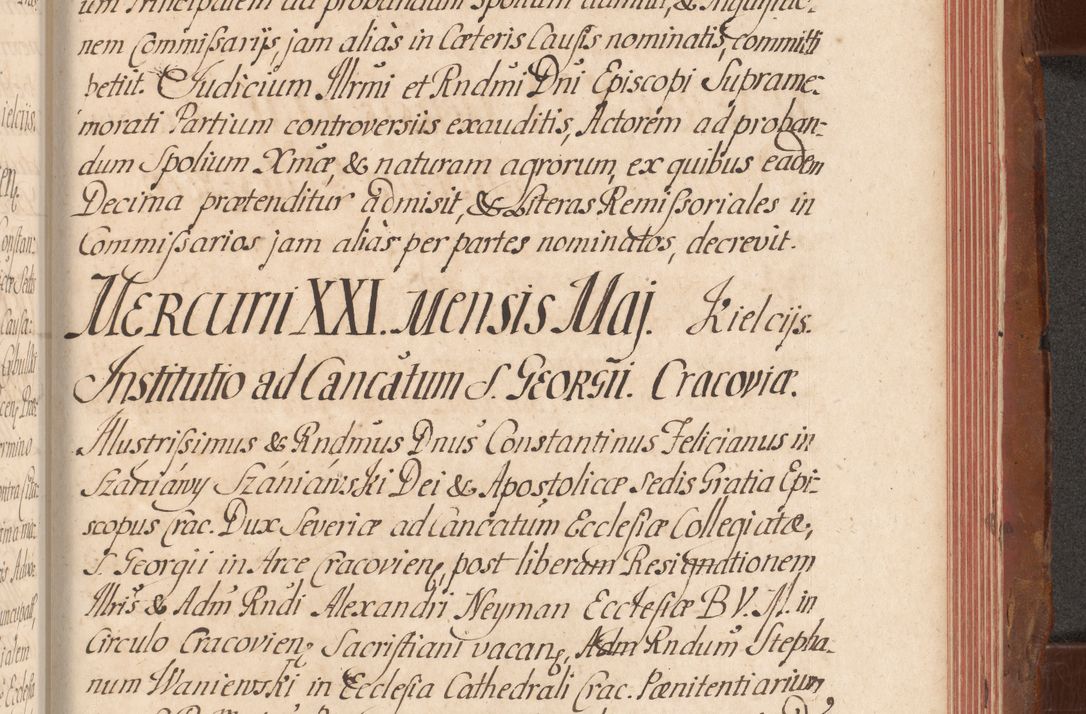 um Principalem ad probandum Spolium admisit, & Inquisitio-
nem Commißarijs, jam aliàs in Cæteris Causis nominatis, committi
petiit. Judicium Illrmi et Rndmi Dni Episcopi Suprame-
morati Partium controversiis exauditis, Actorem ad proban-
dum Spolium Xmæ, & naturam agrorum, ex quibus eadem
Decima prætenditur admisit, & Literas Remißoriales in
Commißarios jam aliàs per partes nominatos, decrevit.
MERCURII XXI. MENSIS MAJ. Kielcijs.
Institutio ad Cancãtum S. GEORGII. Cracoviæ.
Illustrißimus & Rndmus Dnus Constantinus Felicianus in
Szaniáwy Szániáwski Dei & Apostolicæ Sedis Gratia Epi-
scopus Crac. Dux Severiæ ad Cancatum Ecclesiæ Collegiatæ,
S Georgii in Arce Cracovien, post liberam Resignationem
Illris & Adm Rndi Alexandri Neyman Ecclesiæ B V. M. in
Circulo Cracovien Sacristiani vacan, Adm Rndum Stepha-
num Waniewski in Ecclesia Cathedrali Crac. Pænitentiarium,